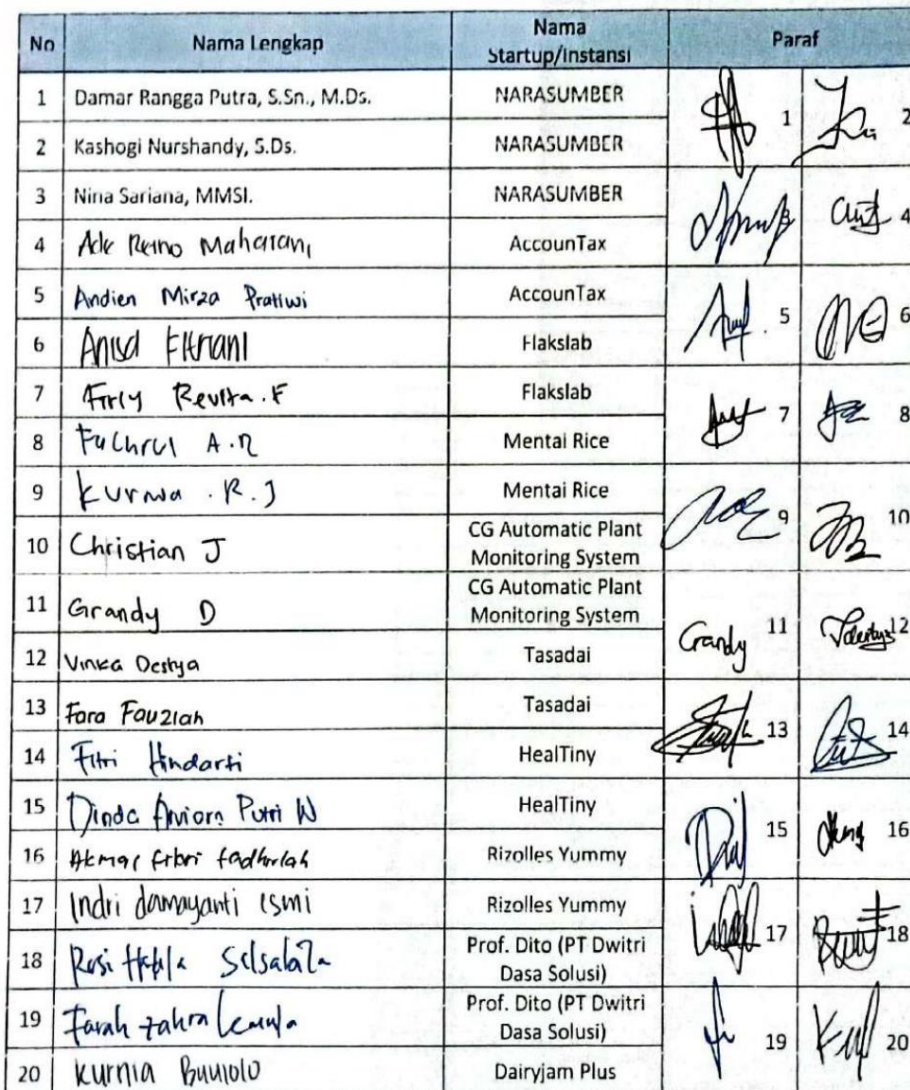 No Nama Lengkap Nama Startup/Instansi Paraf
1 Damar Rangga Putra, S.Sn., M.Ds. NARASUMBER 1 2
2 Kashogi Nurshandy, S.Ds. NARASUMBER
3 Nina Sariana, MMSI. NARASUMBER 3 4
4 Ade Retno Maharani AccounTax
5 Andien Mirza Pratiwi AccounTax 5 6
6 Anisa Fitriani Flakslab
7 Firly Revita.F Flakslab 7 8
8 Fachrul A.R Mentai Rice
9 Kurnia .R.J Mentai Rice 9 10
10 Christian J CG Automatic Plant Monitoring System
11 Grandy D CG Automatic Plant Monitoring System Grandy 11 12
12 Vinka Destya Tasadai
13 Fara Fauziah Tasadai 13 14
14 Fitri Hindarti HealTiny
15 Dinda Putri W HealTiny 15 16
16 Akmal Rizolles Yummy
17 Indri damayanti ismi Rizolles Yummy 17 18
18 Rosi Salsabila Prof. Dito (PT Dwitri Dasa Solusi)
19 Farah zahra Prof. Dito (PT Dwitri Dasa Solusi) 19 20
20 Kurnia Dairyjam Plus